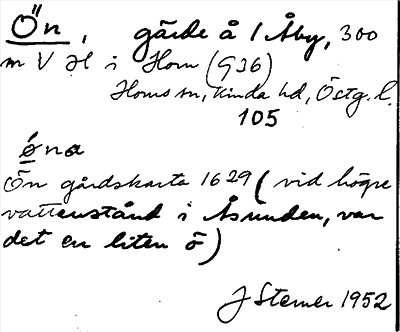 Ön, gärde å 1 Åby, 300
m V H i Horn (936)
Horns sn, Kinda hd, Östg. l.
105
øna
Ön gårdskarta 1629 (vid högre
vattenstånd i Åsunden, var
det en liten ö)
J Sterner 1952